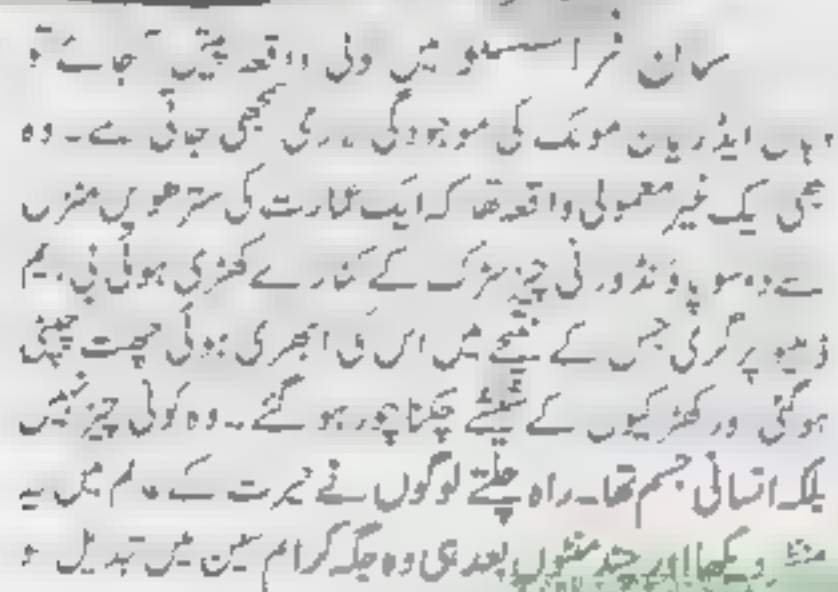 سان فرانسسکو میں کوئی واقعہ پیش آ جائے تو
وہاں ایڈریان مونک کی موجودگی ضروری سمجھی جاتی ہے۔ وہ
بھی ایک غیر معمولی واقعہ تھا کہ ایک عمارت کی سترھویں منزل
سے دو سو پاؤنڈ وزنی چیز سڑک کے کنارے کھڑی ہوئی بی ایم
ڈبلیو پر گری جس کے نتیجے میں اس کی ابھری ہوئی چھت چپٹی
ہو گئی اور کھڑکیوں کے شیشے چکنا چور ہو گئے۔ وہ کوئی چیز نہیں
بلکہ انسانی جسم تھا۔ راہ چلتے لوگوں نے حیرت کے عالم میں یہ
منظر دیکھا اور چند منٹوں بعد ہی وہ جگہ کرائم سین میں تبدیل ہو